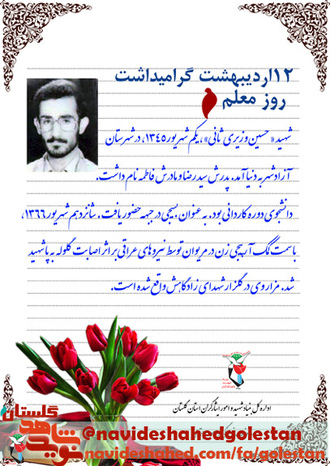 ۱۲اردیبهشت گرامیداشت
روز معلم
شهید «حسین وزیری ثانی»، یکم شهریور ۱۳۴۵، در شهرستان
آزادشهر به دنیا آمد. پدرش سیدرضا و مادرش فاطمه نام داشت.
دانشجوی دوره کاردانی بود. به عنوان بسیجی در جبهه حضور یافت. شانزدهم شهریور ۱۳۶۶،
با سمت کمک آرپی‌جی زن در مریوان توسط نیروهای عراقی بر اثر اصابت گلوله به پا شهید
شد. مزار وی در گلزار شهدای زادگاهش واقع شده است.
اداره کل بنیاد شهید و امور ایثارگران استان گلستان
گلستان
نوید شاهد
@navideshahedgolestan
www.navideshahed.com/fa/golestan